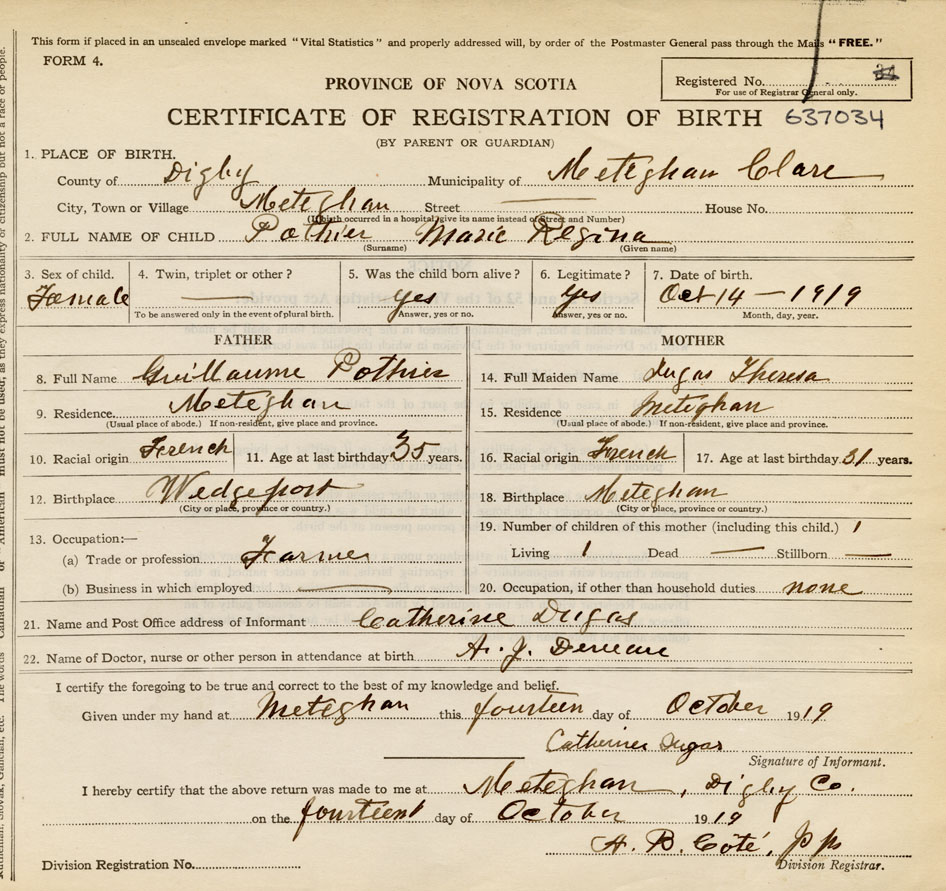 This form if placed in an unsealed envelope marked "Vital Statistics" and properly addressed will, by order of the Postmaster General pass through the Mails "FREE."
FORM 4.
PROVINCE OF NOVA SCOTIA
Registered No.
For use of Registrar General only.
CERTIFICATE OF REGISTRATION OF BIRTH 637034
(BY PARENT OR GUARDIAN)
1. PLACE OF BIRTH.
County of Digby Municipality of Meteghan Clare
City, Town or Village Meteghan Street House No.
(If birth occurred in a hospital, give its name instead of Street and Number)
2. FULL NAME OF CHILD Pothier Marie Regina
(Surname) (Given name)
3. Sex of child. 4. Twin, triplet or other? 5. Was the child born alive? 6. Legitimate? 7. Date of birth.
Female — yes yes Oct 14 — 1919
To be answered only in the event of plural birth. Answer, yes or no. Answer, yes or no. Month, day, year.
FATHER MOTHER
8. Full Name Guillaume Pothier 14. Full Maiden Name Dugas Theresa
9. Residence Meteghan 15. Residence Meteghan
(Usual place of abode.) If non-resident, give place and province. (Usual place of abode.) If non-resident, give place and province.
10. Racial origin French 11. Age at last birthday 35 years. 16. Racial origin French 17. Age at last birthday 31 years.
12. Birthplace Wedgeport 18. Birthplace Meteghan
(City or place, province or country.) (City or place, province or country.)
19. Number of children of this mother (including this child.) 1
13. Occupation:—
(a) Trade or profession Farmer Living 1 Dead — Stillborn —
(b) Business in which employed — 20. Occupation, if other than household duties none
21. Name and Post Office address of Informant Catherine Dugas
22. Name of Doctor, nurse or other person in attendance at birth A. J.
I certify the foregoing to be true and correct to the best of my knowledge and belief.
Given under my hand at Meteghan this fourteen day of October 1919
Catherine Dugas
Signature of Informant.
I hereby certify that the above return was made to me at Meteghan, Digby Co.
on the fourteent day of October 1919
A. B. Coté, ppr
Division Registration No. Division Registrar.